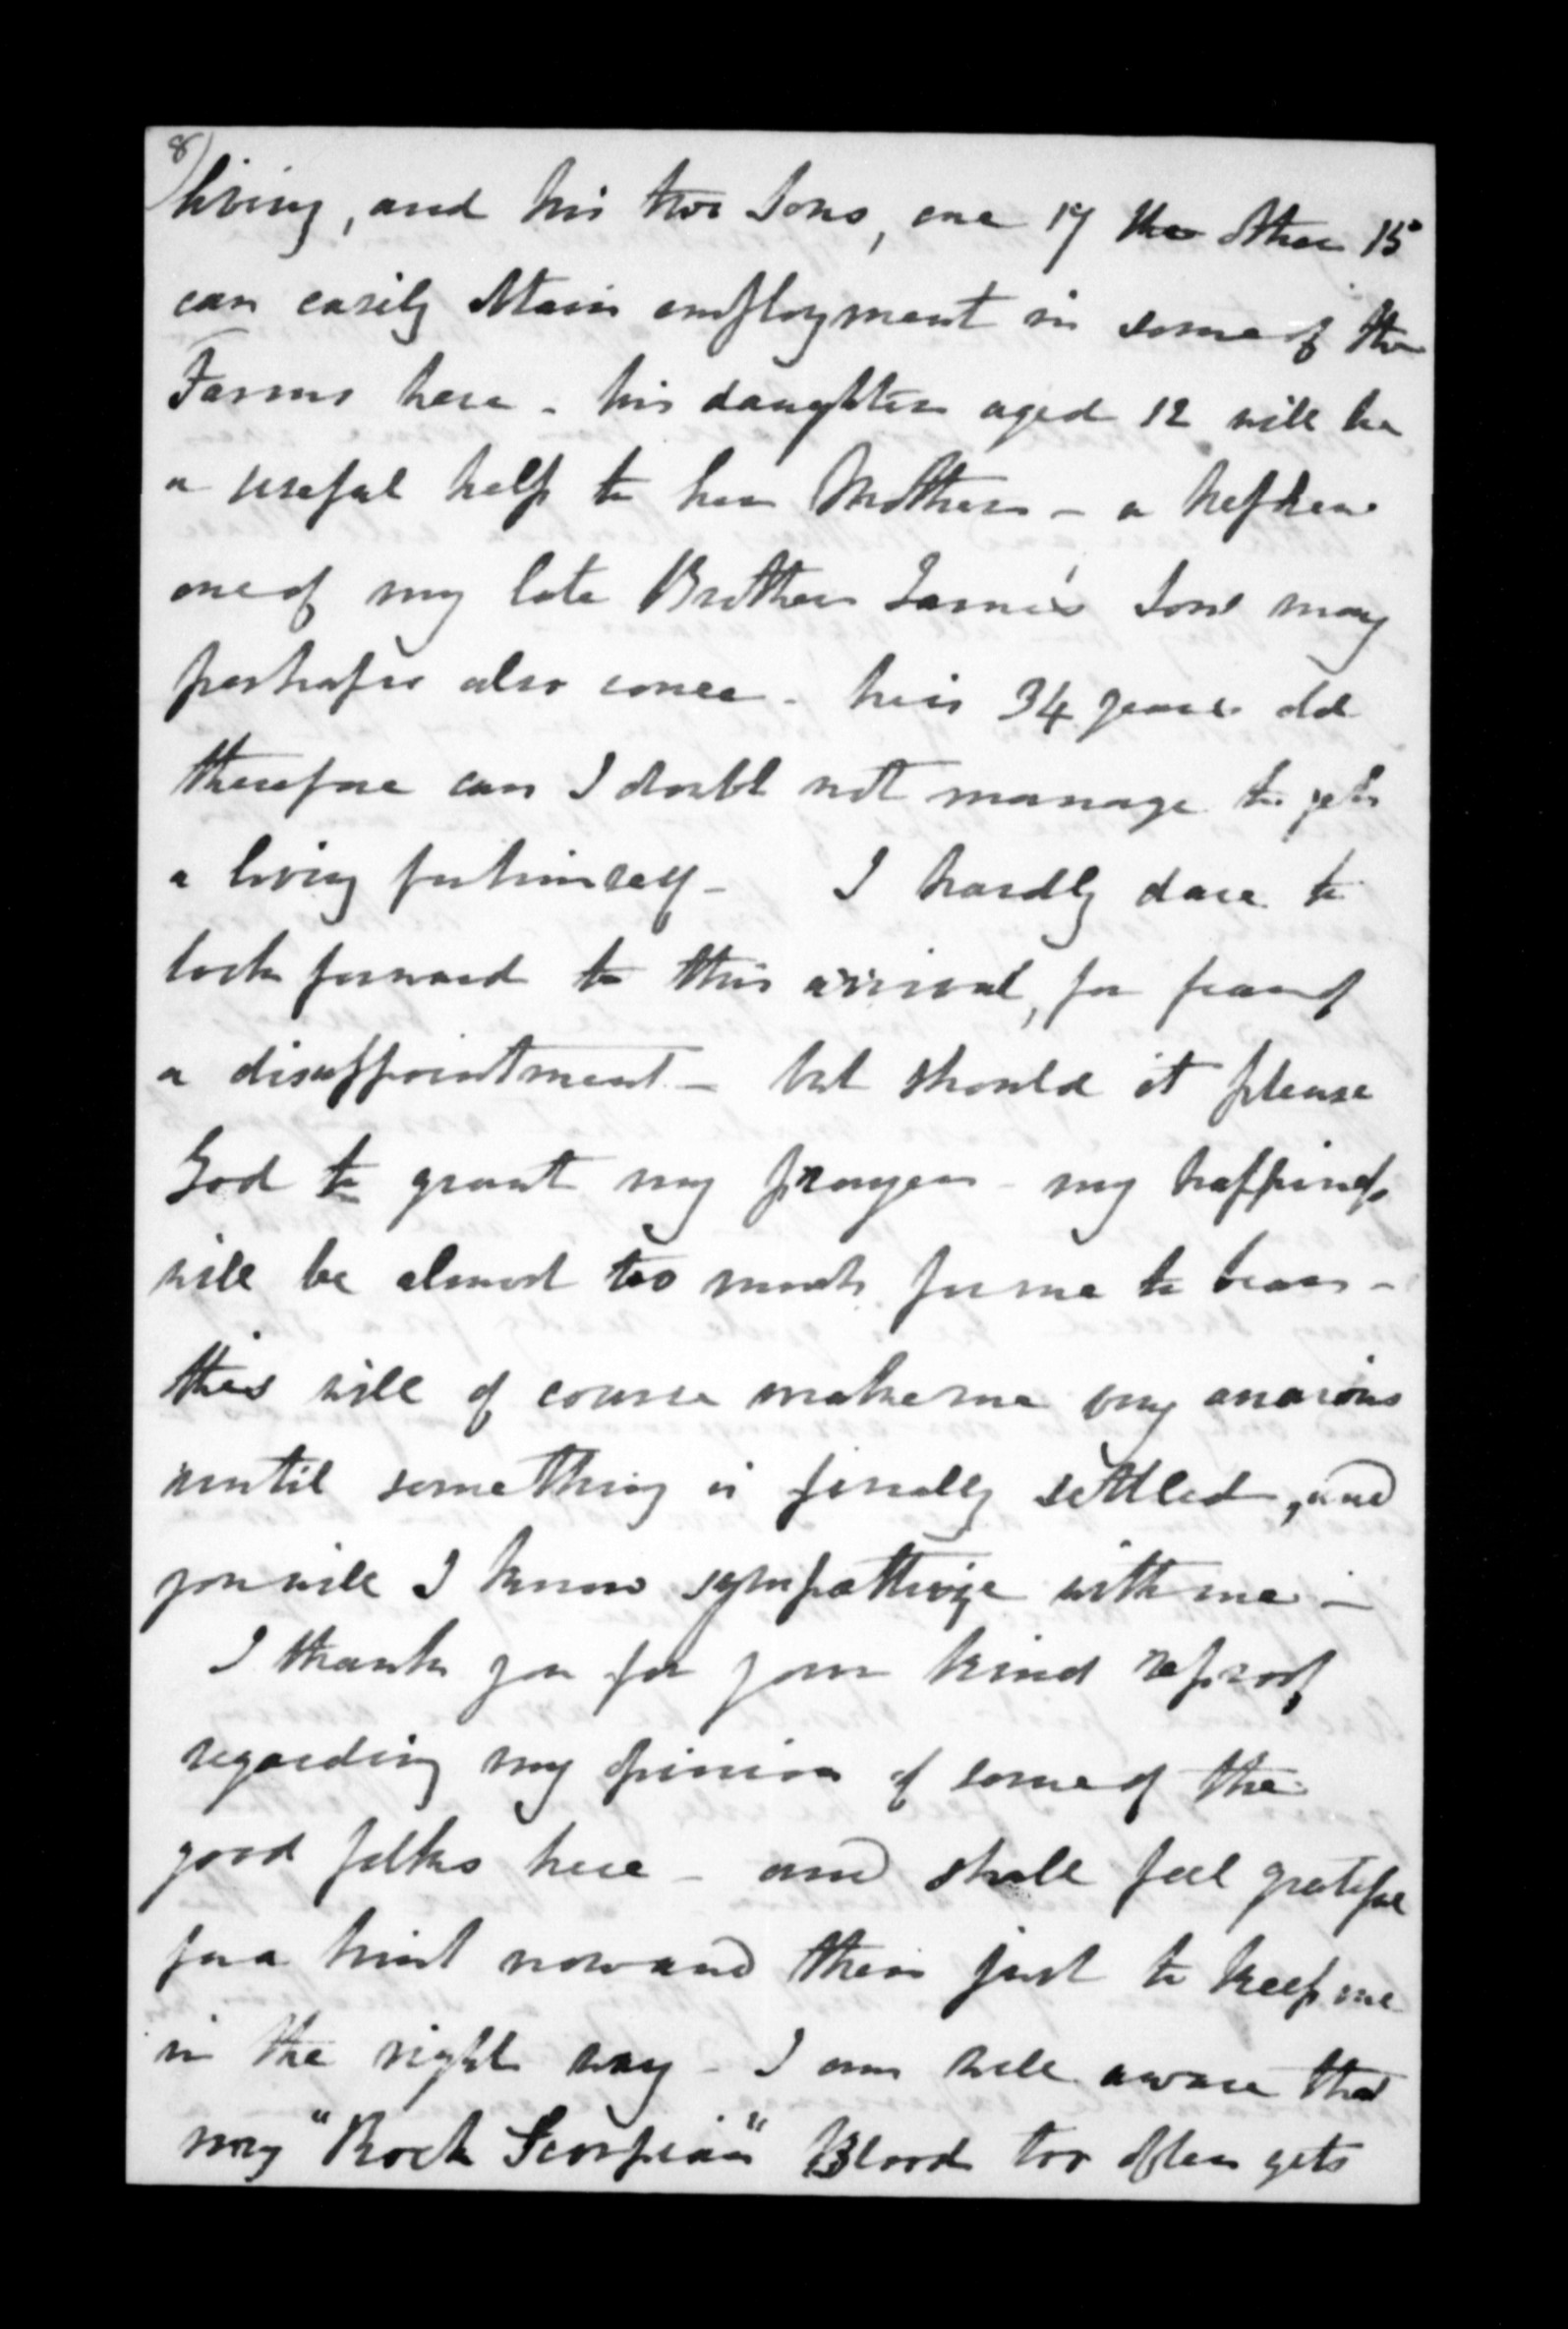 8)
living, and his two Sons, one 17 the other 15
can easily obtain employment in some of the
Farms here - his daughter aged 12 will be
a useful help to her Mother - a Nephew
one of my late Brother James's Sons may
perhaps also come - he is 34 years old
therefore can I doubt not manage to get
a living for himself - I hardly dare to
look forward to this arrival, for fear of
a disappointment - but should it please
God to grant my prayer - my happiness
will be almost too much for me to bear -
this will of course make me very anxious
until something is finally settled, and
you will I know sympathize with me -
I thank you for your kind reproof
regarding my opinion of some of the
good folks here - and shall feel grateful
for a hint now and then just to keep me
in the right way - I am well aware that
my "Rock Scorpion" Blood too often gets